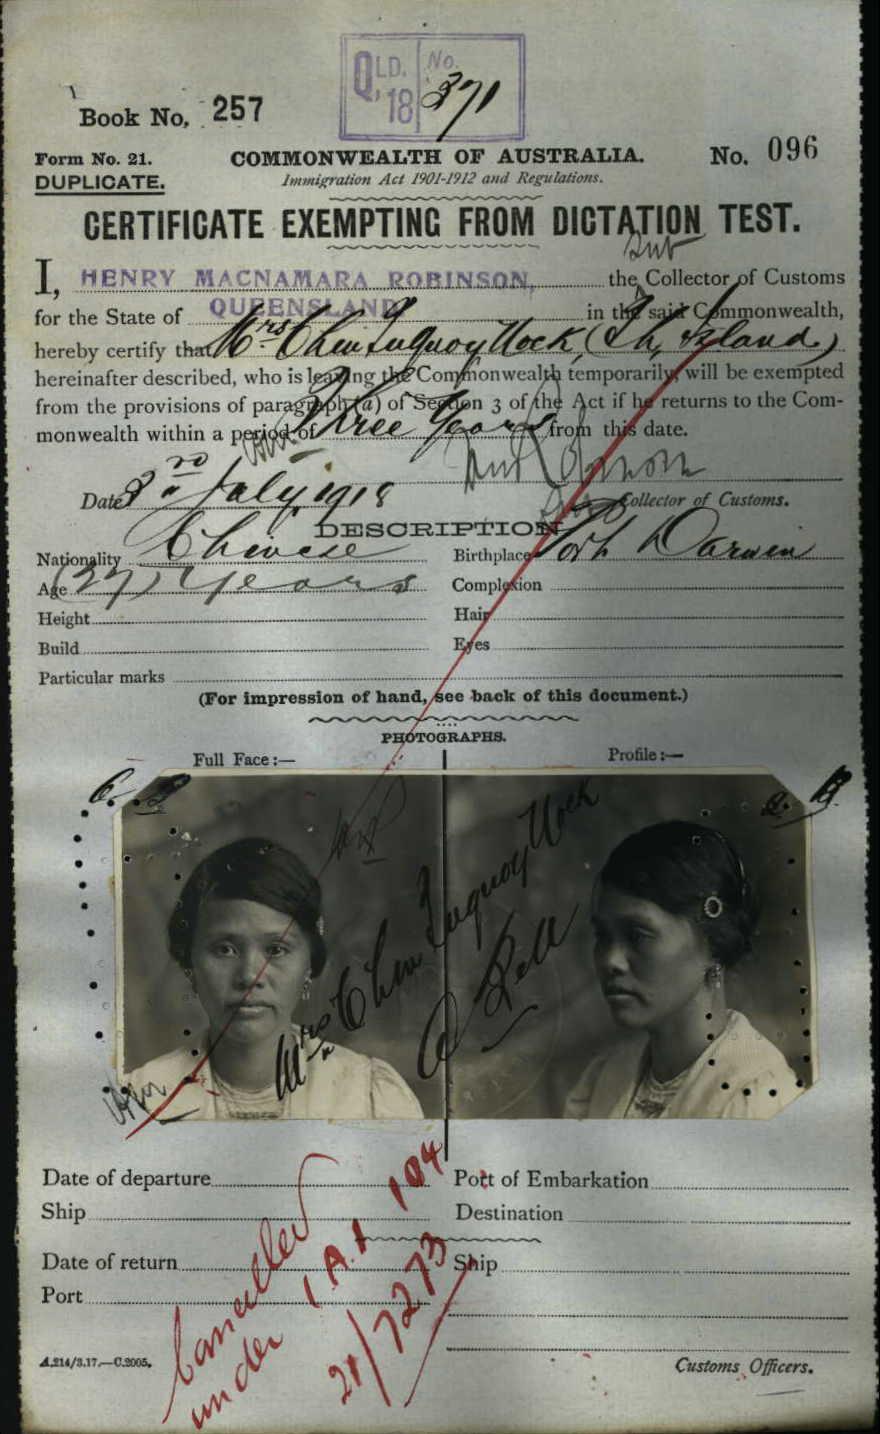 QLD. No.
18 371
Book No. 257
Form No. 21. COMMONWEALTH OF AUSTRALIA. No. 096
DUPLICATE. Immigration Act 1901-1912 and Regulations.
CERTIFICATE EXEMPTING FROM DICTATION TEST.
Sub
I, HENRY MACNAMARA ROBINSON, the Collector of Customs
for the State of QUEENSLAND in the said Commonwealth,
hereby certify that Mrs Chin Suquoy Hock, (Th. Island)
hereinafter described, who is leaving the Commonwealth temporarily, will be exempted
from the provisions of paragraph (a) of Section 3 of the Act if he returns to the Com-
monwealth within a period of Three Years from this date.
Date 3rd July, 1918 Collector of Customs.
DESCRIPTION
Nationality Chinese Birthplace Port Darwin
Age (27) Years Complexion
Height Hair
Build Eyes
Particular marks
(For impression of hand, see back of this document.)
PHOTOGRAPHS.
Full Face :— Profile :—
Mrs Chin Suquoy Hock
Date of departure Port of Embarkation
Ship Destination
Date of return Ship
Port
Cancelled
under I.A.1 104
21/7273
A.214/3.17.—C.2005. Customs Officers.